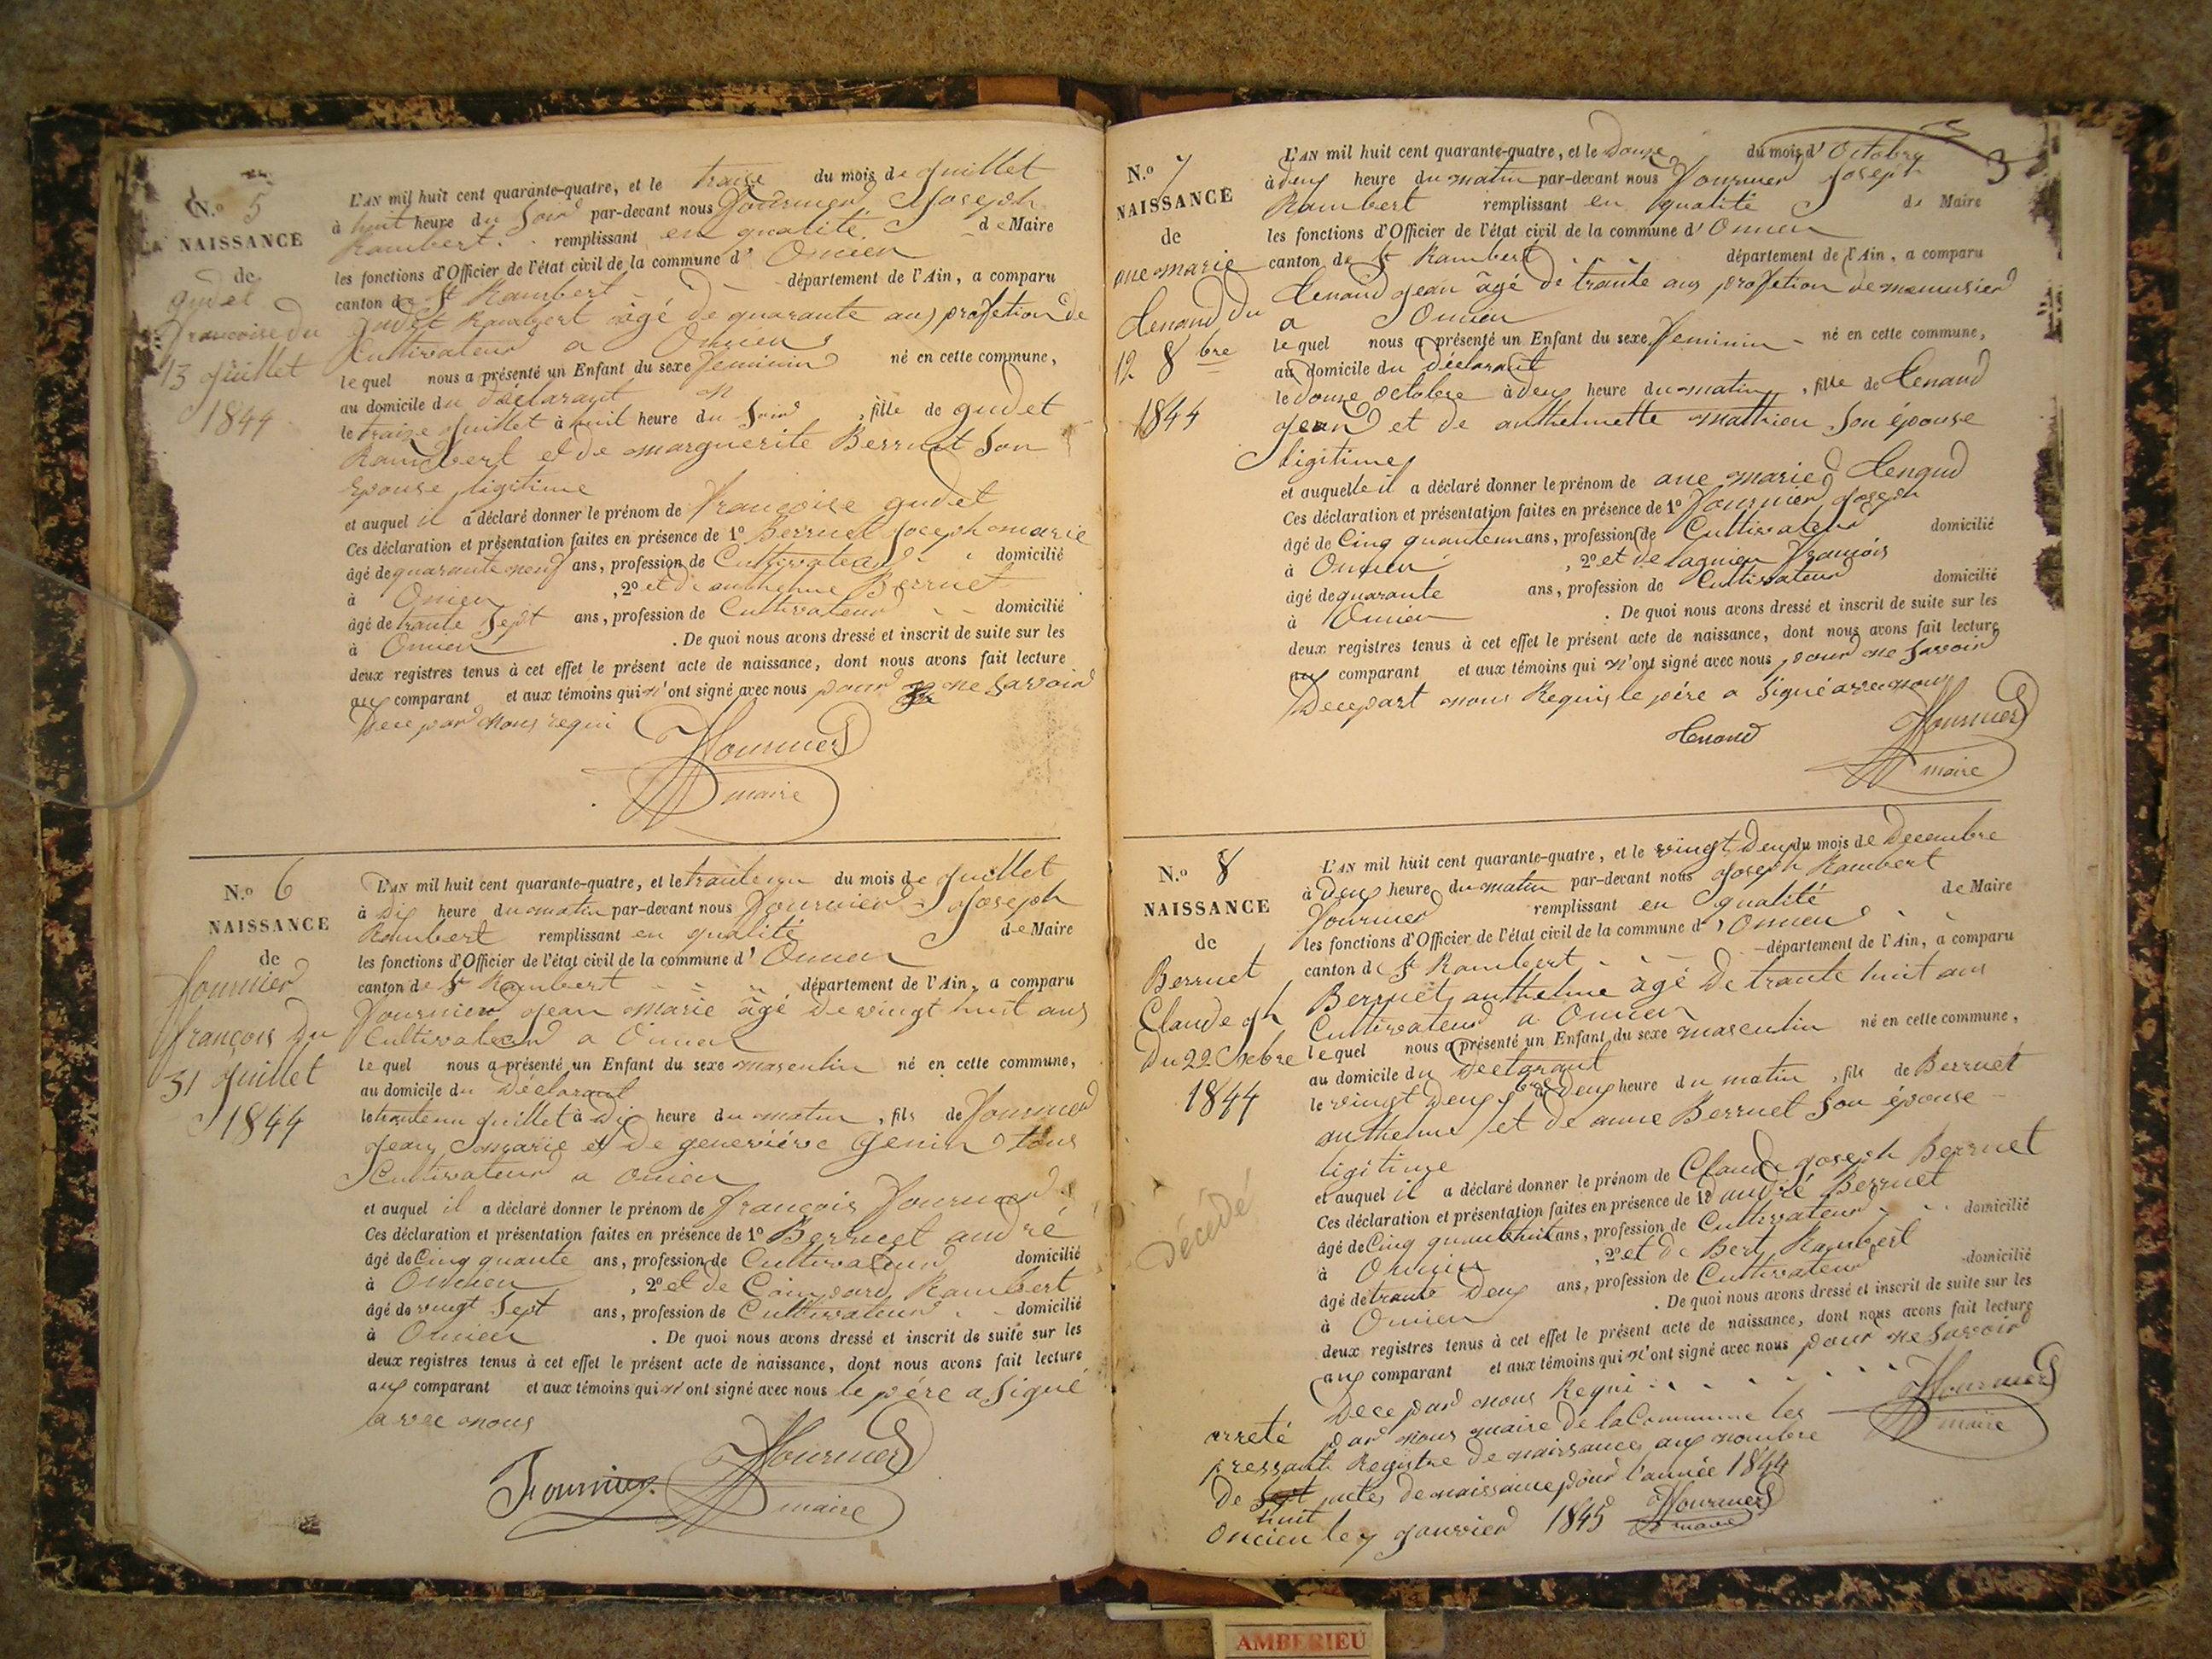 N.o 5
NAISSANCE
de
gudet
francoise du
13 juillet
1844
L'AN mil huit cent quarante-quatre, et le traize du mois de juillet
à huit heure du soir par-devant nous fournier Joseph
Rambert remplissant en qualité de Maire
les fonctions d'Officier de l'état civil de la commune d' Oncieu
canton de St Rambert département de l'Ain, a comparu
gudet Rambert agé de quarante ans profetion de
Cultivateur a Oncieu
lequel nous a présenté un Enfant du sexe feminin né en cette commune,
au domicile du déclarant
le traize juillet à huit heure du soir, fille de gudet
Rambert et de marguerite Berruet son
epouse ligitime
et auquel il a déclaré donner le prénom de francoise gudet
Ces déclaration et présentation faites en présence de 1o Berruet joseph marie
âgé de quarante neuf ans, profession de Cultivateur domicilié
à Oncieu, 2o et de anthelme Berruet
âgé de trante sept ans, profession de Cultivateur domicilié
à Oncieu. De quoi nous avons dressé et inscrit de suite sur les
deux registres tenus à cet effet le présent acte de naissance, dont nous avons fait lecture
aux comparant et aux témoins qui n'ont signé avec nous pour ne savoir
Dece par nous requi
fournier
maire
N.o 6
NAISSANCE
de
fournier
françois du
31 juillet
1844
L'AN mil huit cent quarante-quatre, et le trante un du mois de juillet
à dix heure du matin par-devant nous fournier Joseph
Rambert remplissant en qualité de Maire
les fonctions d'Officier de l'état civil de la commune d' Oncieu
canton de St Rambert département de l'Ain, a comparu
fournier jean marie âgé de vingt huit ans
Cultivateur a Oncieu
lequel nous a présenté un Enfant du sexe masculin né en cette commune,
au domicile du Déclarant
le trante un juillet à dix heure du matin, fils de fournier
jean marie et de geneviève Genin tous
Cultivateur a Oncieu
et auquel il a déclaré donner le prénom de françois fournier
Ces déclaration et présentation faites en présence de 1o Berruet andré
âgé de Cinq quante ans, profession de Cultivateur domicilié
à Oncieu, 2o et de Rambert
âgé de vingt sept ans, profession de Cultivateur domicilié
à Oncieu. De quoi nous avons dressé et inscrit de suite sur les
deux registres tenus à cet effet le présent acte de naissance, dont nous avons fait lecture
aux comparant et aux témoins qui n'ont signé avec nous le père a signé
avec nous
Fournier
fournier
maire
3
N.o 7
NAISSANCE
de
ane marie
du
12 8bre
1844
L'AN mil huit cent quarante-quatre, et le Douze du mois d' Octobre
à deux heure du matin par-devant nous fournier joseph
Rambert remplissant en qualité de Maire
les fonctions d'Officier de l'état civil de la commune d' Oncieu
canton de St Rambert département de l'Ain, a comparu
jean âgé de trante ans profetion de menusier
a Oncieu
lequel nous a présenté un Enfant du sexe feminin né en cette commune,
au domicile du déclarant
le douze octobre à deux heure du matin, fille de
jean et de anthelmette mathieu son épouse
ligitime
et auquelle il a déclaré donner le prénom de ane marie
Ces déclaration et présentation faites en présence de 1o fournier joseph
âgé de Cinq quante ans, profession de Cultivateur domicilié
à Oncieu, 2o et de lagnier françois
âgé de quarante ans, profession de Cultivateur domicilié
à Oncieu. De quoi nous avons dressé et inscrit de suite sur les
deux registres tenus à cet effet le présent acte de naissance, dont nous avons fait lecture
aux comparant et aux témoins qui n'ont signé avec nous pour ne savoir
Dece part nous Requis le père a signé avec nous
fournier
maire
N.o 8
NAISSANCE
de
Berruet
Claude jh
Du 22 Xebre
1844
Décédé
L'AN mil huit cent quarante-quatre, et le vingt deux du mois de Decembre
à deux heure du matin par-devant nous joseph Rambert
fournier remplissant en qualité de Maire
les fonctions d'Officier de l'état civil de la commune d' Oncieu
canton de St Rambert département de l'Ain, a comparu
Berruet anthelme âgé de trante huit ans
Cultivateur a Oncieu
lequel nous a présenté un Enfant du sexe masculin né en cette commune,
au domicile du Declarant
le vingt deux à deux heure du matin, fils de Berruet
anthelme et de anne Berruet son épouse
ligitime
et auquel il a déclaré donner le prénom de Claude joseph Berruet
Ces déclaration et présentation faites en présence de 1o andré Berruet
âgé de Cinq quante huit ans, profession de Cultivateur domicilié
à Oncieu, 2o et de Bert Rambert
âgé de trante deux ans, profession de Cultivateur domicilié
à Oncieu. De quoi nous avons dressé et inscrit de suite sur les
deux registres tenus à cet effet le présent acte de naissance, dont nous avons fait lecture
aux comparant et aux témoins qui n'ont signé avec nous pour ne savoir
Dece par nous Requi
fournier
maire
arreté par nous maire de la Commune les
pressante Registre de naissances aux nombre
De sept actes de naissance pour l'année 1844
huit
Oncieu le 7 janvier 1845 fournier
maire
AMBERIEU